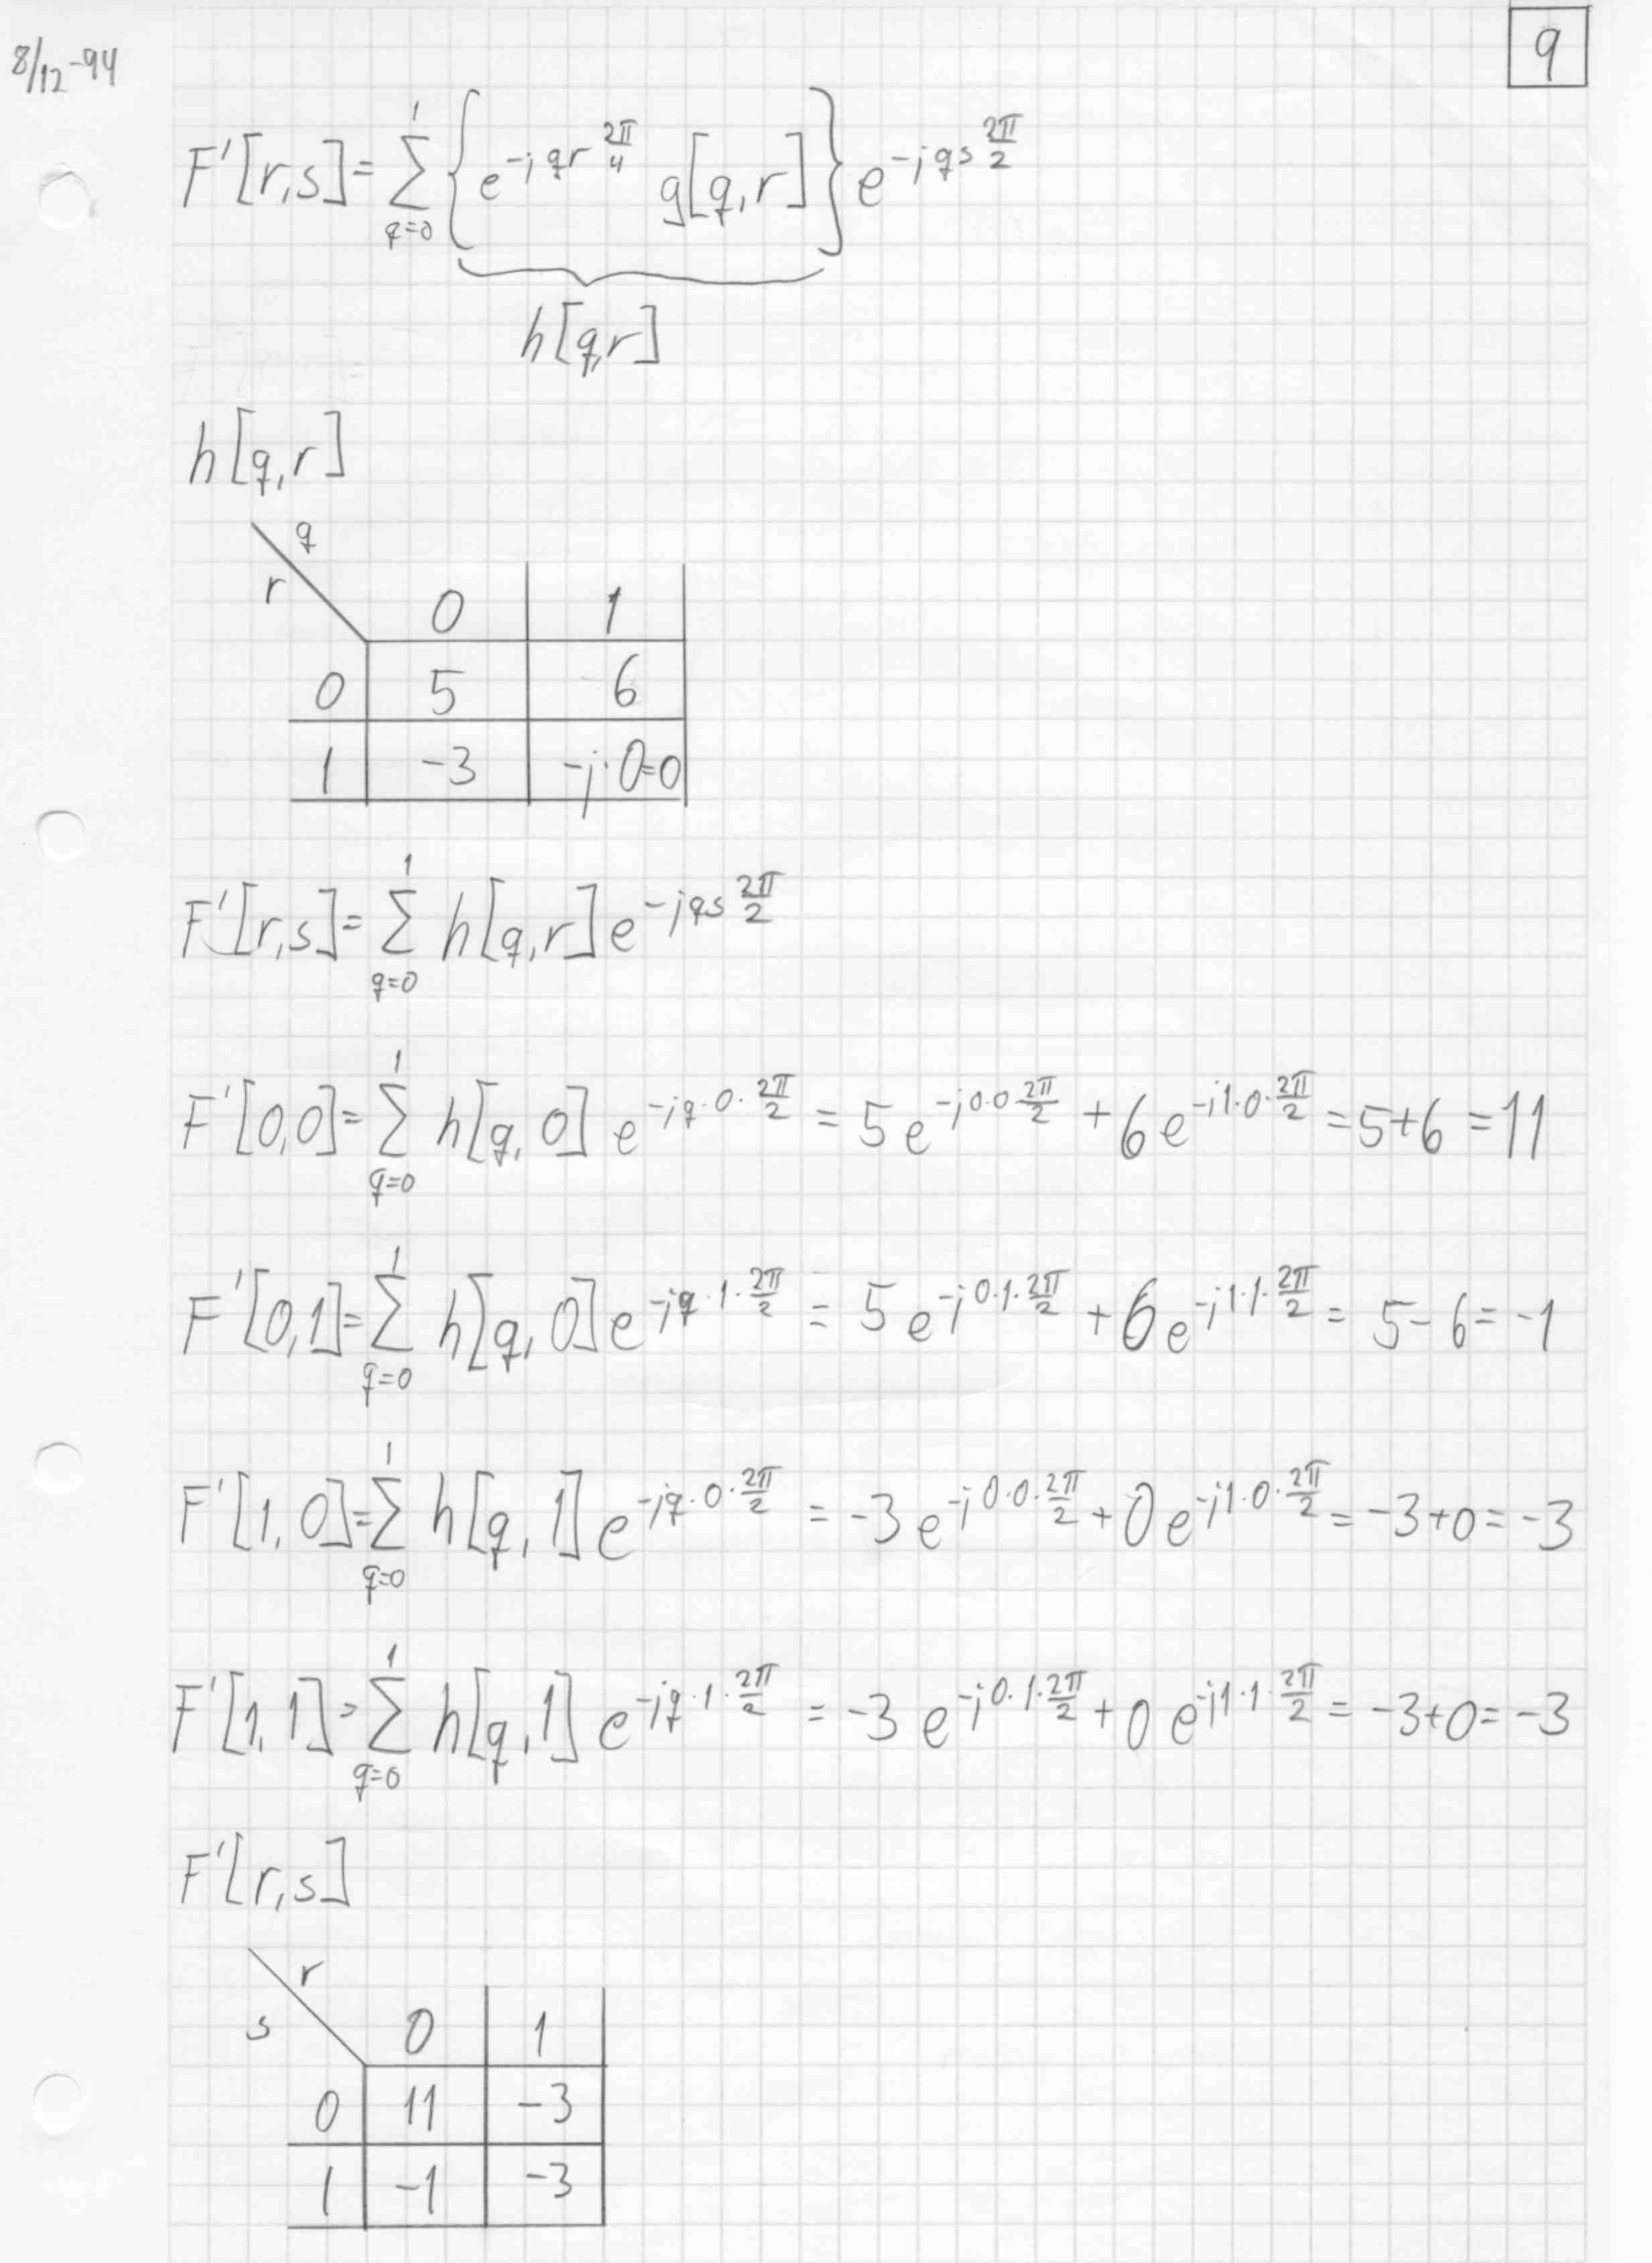 8/12-94
9
F'[r,s]= Σ_{q=0}^{1} {e^{-jqr 2π/4} g[q,r]} e^{-jqs 2π/2}
h[q,r]
h[q,r]
q
r
0 1
0 5 6
1 -3 -j·0=0
F'[r,s]= Σ_{q=0}^{1} h[q,r] e^{-jqs 2π/2}
F'[0,0]= Σ_{q=0}^{1} h[q,0] e^{-jq·0·2π/2} = 5e^{-j0·0·2π/2} + 6e^{-j1·0·2π/2} = 5+6 = 11
F'[0,1]= Σ_{q=0}^{1} h[q,0] e^{-jq·1·2π/2} = 5e^{-j0·1·2π/2} + 6e^{-j1·1·2π/2} = 5-6 = -1
F'[1,0]= Σ_{q=0}^{1} h[q,1] e^{-jq·0·2π/2} = -3e^{-j0·0·2π/2} + 0e^{-j1·0·2π/2} = -3+0 = -3
F'[1,1]= Σ_{q=0}^{1} h[q,1] e^{-jq·1·2π/2} = -3e^{-j0·1·2π/2} + 0e^{-j1·1·2π/2} = -3+0 = -3
F'[r,s]
r
s
0 1
0 11 -3
1 -1 -3